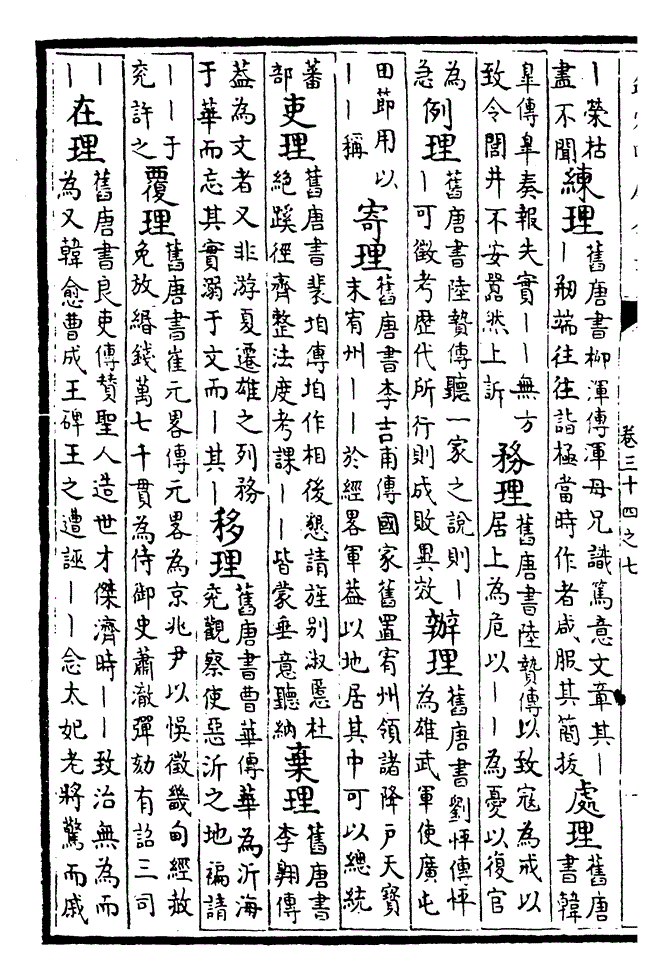 ｜榮枯
盡不聞
練理
舊唐書柳渾傳渾母兄識篤意文章其｜
｜刱端往往詣極當時作者咸服其簡拔
處理
舊唐
書韓
臯傳臯奏報失實｜｜無方
致令閭井不安囂然上訴
務理
舊唐書陸贄傳以致寇為戒以
居上為危以｜｜為憂以復官
為
急
例理
舊唐書陸贄傳聽一家之說則｜
｜可徵考歴代所行則成敗異效
辦理
舊唐書劉怦傳怦
為雄武軍使廣屯
田節用以
｜｜稱
寄理
舊唐書李吉甫傳國家舊置宥州領諸降戸天寳
末宥州｜｜於經畧軍葢以地居其中可以總統
蕃
部
吏理
舊唐書裴垍傳垍作相後懇請旌别淑慝杜
絶蹊徑齊整法度考課｜｜皆蒙垂意聽納
棄理
舊唐書
李翺傳
葢為文者又非游夏遷雄之列務
于華而忘其實溺于文而｜其｜
移理
舊唐書曹華傳華為沂海
兖觀察使惡沂之地褊請
｜｜于
兖許之
覆理
舊唐書崔元畧傳元畧為京兆尹以悞徵畿甸經赦
免放緡錢萬七千貫為侍御史蕭澈彈劾有詔三司
｜
｜
在理
舊唐書良吏傳贊聖人造世才傑濟時｜｜致治無為而
為又韓愈曹成王碑王之遭誣｜｜念太妃老將驚而戚
卷三十四之七